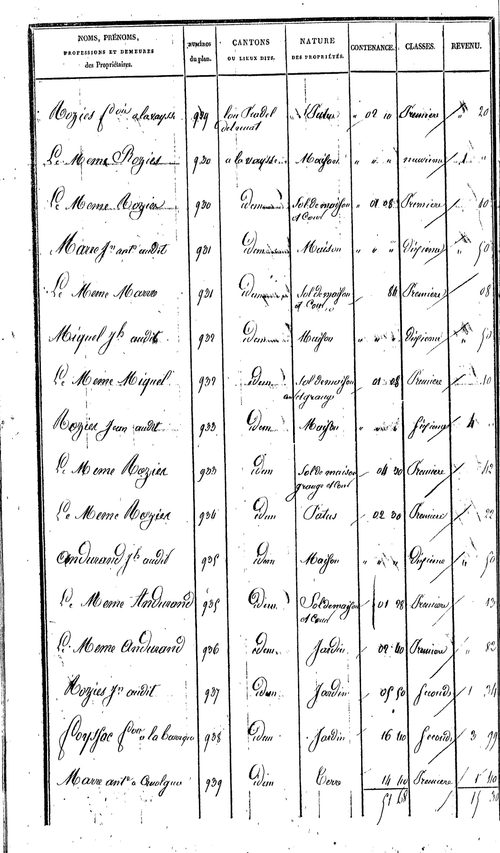 NOMS, PRÉNOMS, PROFESSIONS ET DEMEURES des Propriétaires. NUMÉROS du plan. CANTONS OU LIEUX DITS. NATURE DES PROPRIÉTÉS. CONTENANCE. CLASSES. REVENU.
Rozies a la vaysse 929 Patus " 02 10 Premiere " 20
Le Meme Rozies 930 a la vaysse Maison " " " neuvieme 1 "
Le Meme Rozies 930 idem Sol de maison et Cour " 01 08 Premiere 10
Marre Jn ante audit 931 idem Maison " " " Dixieme " 50
Le Meme Marre 931 idem Sol de maison et Cour 84 Premiere 08
Miquel Jh audit 932 idem Maison " " " Dixieme " 50
Le Meme Miquel 932 idem Sol de maison et grange 01 08 Premiere 10
Rozies Jean audit 933 idem Maison " " " Sixieme 4
Le Meme Rozies 933 idem Sol de maison grange et Cour " 04 30 Premiere " 42
Le Meme Rozies 934 idem Patus " 02 30 Premiere " 22
Andurand Jh audit 935 idem Maison " " " Dixieme " 50
Le Meme Andurand 935 idem Sol de maison et Cour 01 28 Premiere 13
Le Meme Andurand 936 idem Jardin 02 40 Premiere " 82
Rozies Jn audit 937 idem Jardin 05 50 Seconde 1 34
a la 938 idem Jardin 16 40 Seconde 3 99
Marre ante a 939 idem Terre 14 40 Premiere 1 40
51 68 15 30